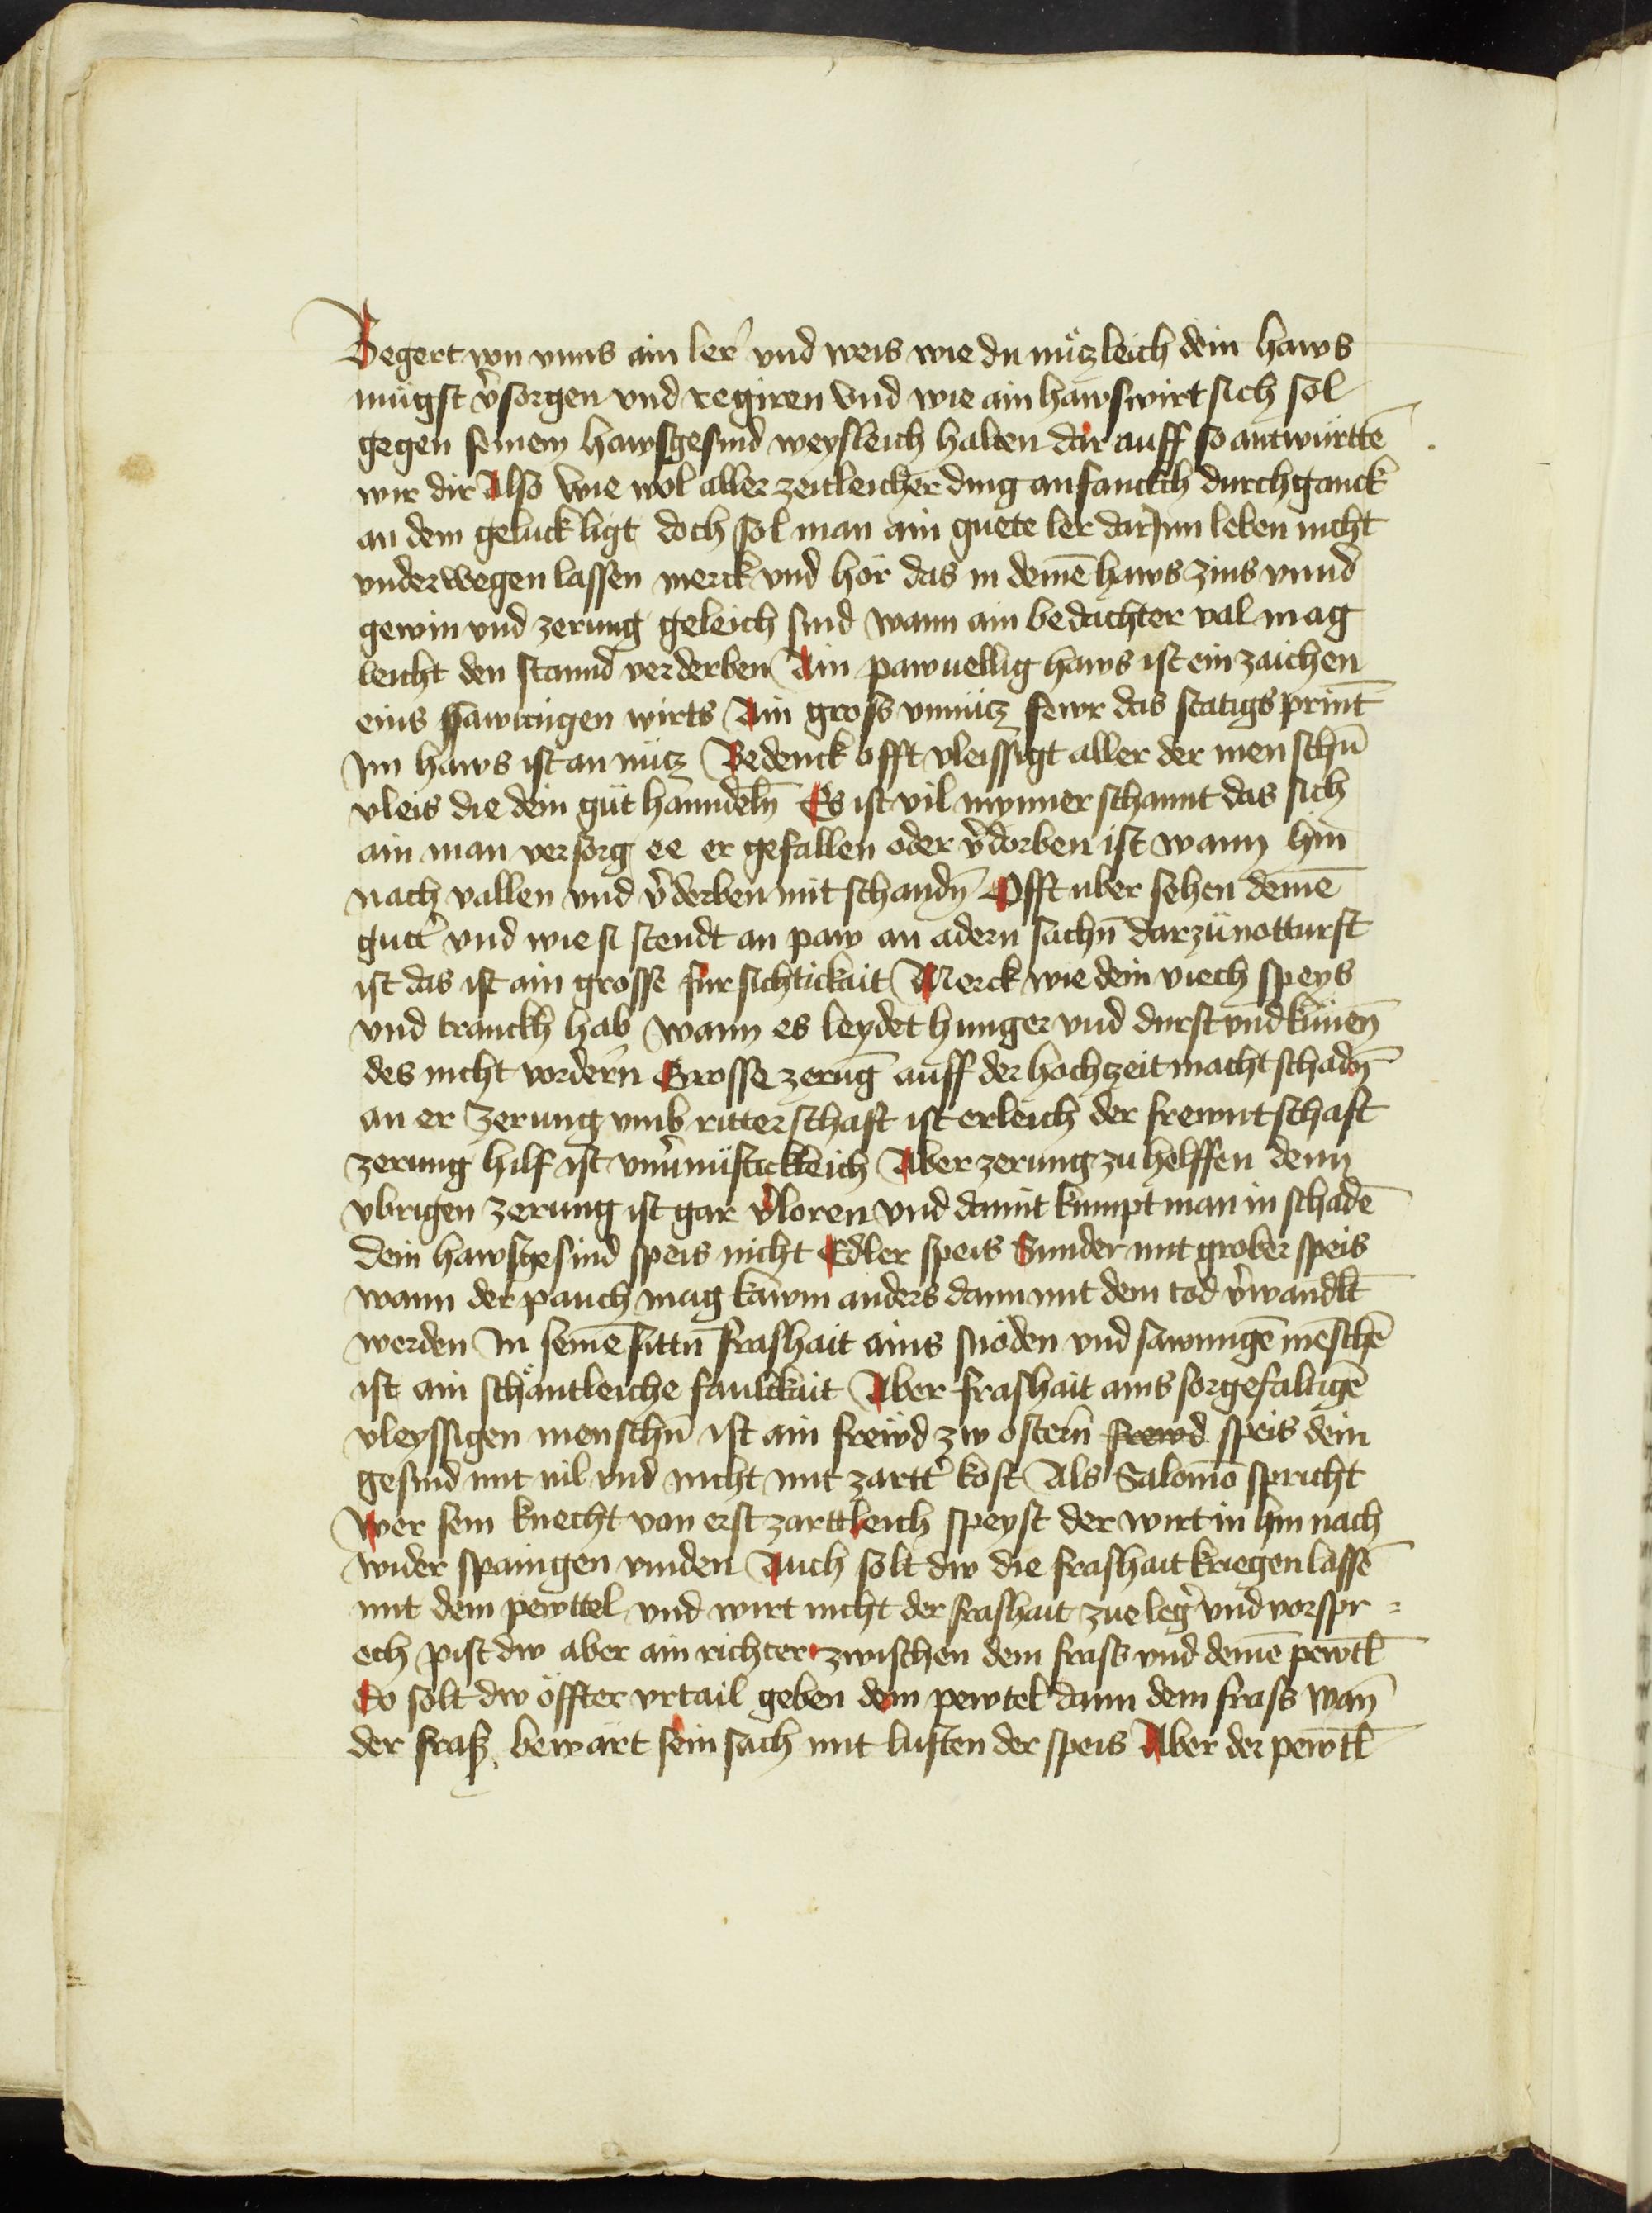 Begert von vnns ain ler vnd weis wie du nützleich dein haws
mügst v̄sorgen vnd regiren vnd wie ain hawswirt sich sol
gegen seinem hawsgesind weysleich halten dar auff so antwürttē
wir dir Also wie wol aller zeitleicher ding anfanckch durchganck
an dem geluck ligt doch sol man ain guete ler darJnn leben nicht
vnderwegen lassen merck vnd hör das in deinē haws zins vnnd
gewin vnd zerung geleich sind wann ain bedachter val mag
leicht den stannd verderben Ain pawuellig haws ist ein zaichen
eins hawrigen wirts Ain gross vnnütz fewr das statigs print
Jm haws ist an nütz Bedenck offt vleissigt aller der menschn̄
vleis die dein güt hanndeln̄ Es ist vil mynner schannt das sich
ain man versorg ee er gefallen oder v̄dorben ist wann hin
nach vallen vnd v̄derben mit schandn̄ Offt uber sehen deinē
gutt̄ vnd wie si stendt an paw an adern sachn̄ darzü notturft
ist das ist ain grosse fursichtickait Merck wie dein viech speys
vnd tranckh hab wann es leydet hunger vnd durst vnd künen̄
des nicht vordern Grosse zerūg auff der hochzeit macht schadn̄
an er zerung vmb ritterschaft ist erleich der frewntschaft
zerung hilf ist vnv̄nüftickleich Aber zerung zu helffen denn
vbrigen zerung ist gar v̄loren vnd damit kumpt man in schadē
dein hawsgesind speis nicht Edler speis Sunder mit grober speis
wann der pauch mag kawm anders dann mit dem tod v̄wandlt
werden In seinē sittn̄ frashait ains snöden vnd sawmigē mēschē
ist ain schäntleiche faulckait Aber frashait ains sorgefaltigē
vleyssigen menschn̄ ist ain frewd zw ostern̄ frewd speis dein
gesind mit vil vnd nicht mit zartt̄ kost Als Salomō spricht
Wer sein knecht von erst zarttleich speyst der wirt in hin nach
wider spanigen vinden Auch solt dw die frashait kriegen lassē
mit dem pewttel vnd wirt nicht der frashait zueleḡ vnd vorspr=
ech pist dw aber ain richter zwischen dem frass vnd deinē pewtl̄
Do solt dw öffter vrtail geben dem pewtel dann dem frass wan̄
der fraß bewärt sein sach mit lusten der speis Aber der pewtl̄